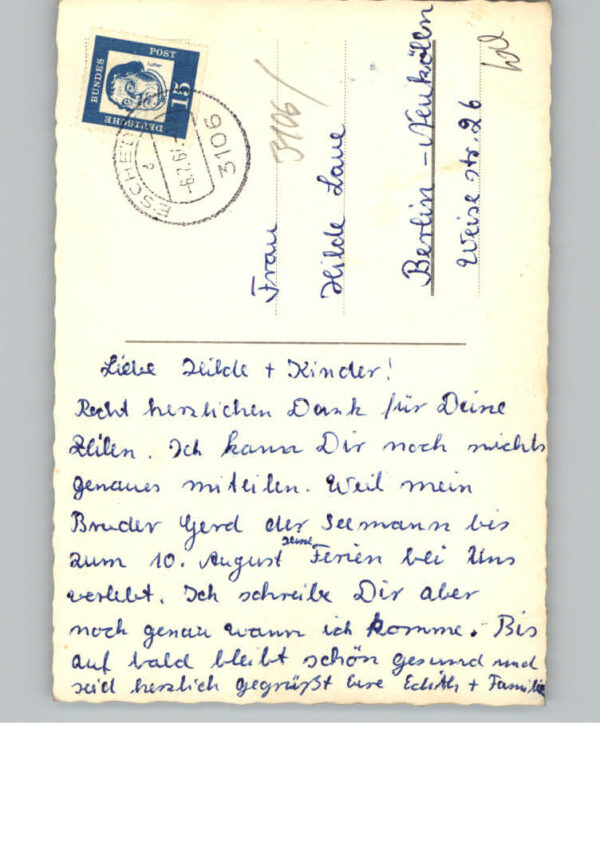 DEUTSCHE BUNDES POST
Luther
15
ESCHEDE
3106
3106/
Frau
Hilde Laue
Berlin - Neuköln
Weise str. 26
Liebe Hilde + Kinder!
Recht herzlichen Dank für Deine
Zeilen. Ich kann Dir noch nichts
genaues miteilen. Weil mein
Bruder Gerd der Seemann bis
zum 10. August seine Ferien bei Uns
verlebt. Ich schreibe Dir aber
noch genau wann ich komme. Bis
auf bald bleibt schön gesund und
seid herzlich gegrüßt Eure Edith + Familie